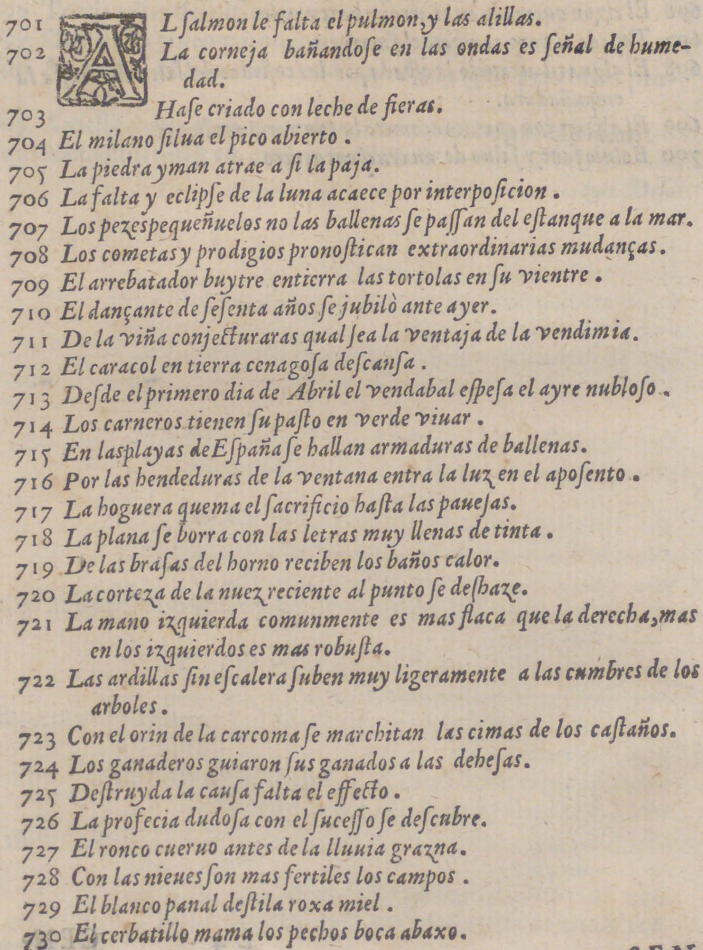 701 AL ſalmon le falta el pulmon,y las alillas.
702 La corneja bañandoſe en las ondas es ſeñal de hume-
dad.
703 Haſe criado con leche de fieras.
704 El milano ſilua el pico abierto .
705 La piedra yman atrae a ſi la paja.
706 La falta y eclipſe de la luna acaece por interpoſicion .
707 Los pezespequeñuelos no las ballenas ſe paſſan del eſtanque a la mar.
708 Los cometas y prodigios pronoſtican extraordinarias mudanças.
709 El arrebatador buytre entierra las tortolas en ſu vientre .
710 El dançante de ſeſenta años ſe jubilò ante ayer.
711 De la viña conjecturaras qual ſea la ventaja de la vendimia.
712 El caracol en tierra cenagoſa deſcanſa .
713 Deſde el primero dia de Abril el vendabal eſpeſa el ayre nubloſo .
714 Los carneros tienen ſu paſto en verde viuar .
715 En lasplayas de Eſpaña ſe hallan armaduras de ballenas.
716 Por las hendeduras de la ventana entra la luz en el apoſento .
717 La hoguera quema el ſacrificio haſta las paueſas.
718 La plana ſe borra con las letras muy llenas de tinta .
719 De las braſas del horno reciben los baños calor.
720 La corteza de la nuez reciente al punto ſe deſhaze.
721 La mano izquierda comunmente es mas flaca que la derecha,mas
en los izquierdos es mas robuſta.
722 Las ardillas ſin eſcalera ſuben muy ligeramente a las cumbres de los
arboles .
723 Con el orin de la carcoma ſe marchitan las cimas de los caſtaños.
724 Los ganaderos guiaron ſus ganados a las deheſas.
725 Deſtruyda la cauſa falta el effecto .
726 La profecia dudoſa con el ſuceſſo ſe deſcubre.
727 El ronco cueruo antes de la lluuia grazna.
728 Con las nieues ſon mas fertiles los campos .
729 El blanco panal deſtila roxa miel .
730 El cerbatillo mama los pechos boca abaxo.